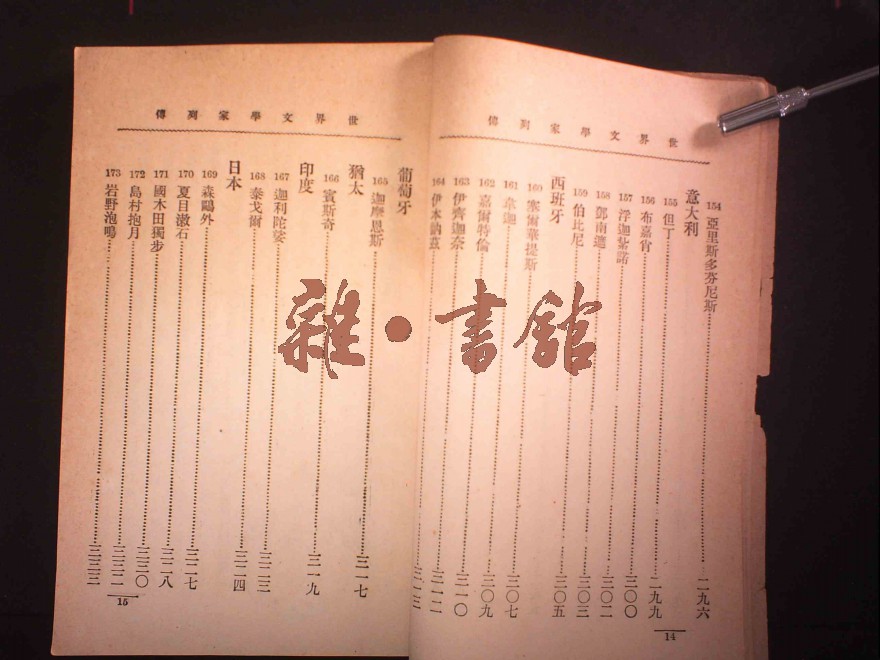 世界文學家列傳
154 亞里斯多芬尼斯……二九六
意大利
155 但丁……二九九
156 布嘉肖……三〇〇
157 浮迦紮諾……三〇二
158 鄧南遮……三〇三
159 伯比尼……三〇五
西班牙
160 塞爾華提斯……三〇七
161 韋迦……三〇九
162 嘉爾特倫……三一〇
163 伊齊迦奈……三一二
164 伊本納茲……三一三
14
世界文學家列傳
葡萄牙
165 迦摩恩斯……三一七
猶太
166 賓斯奇……三一九
印度
167 迦利陀娑……三二三
168 泰戈爾……三二四
日本
169 森鷗外……三二七
170 夏目漱石……三二八
171 國木田獨步……三三〇
172 島村抱月……三三二
173 岩野泡鳴……三三三
15
雜·書館